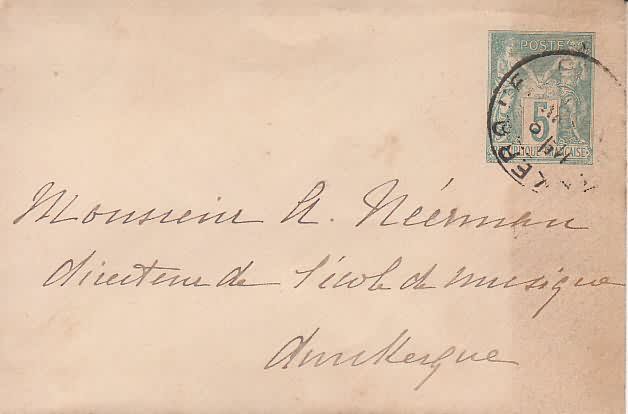 POSTE
5
RÉPUBLIQUE FRANÇAISE
Monsieur A. Neérman
directeur de l'école de musique
dunkerque